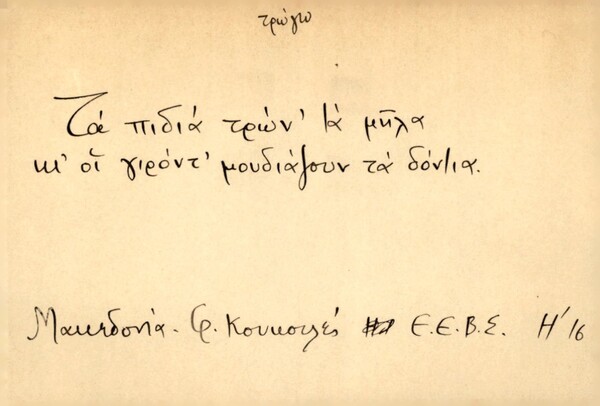 τρώγω
Τά πιδιά τρών' τά μῆλα
κι' οἵ γιρόντ' μουδιάζουν τά δόντια.
Μακεδονία. Φ. Κουκουλές Ε.Ε.Β.Σ. Η' 16